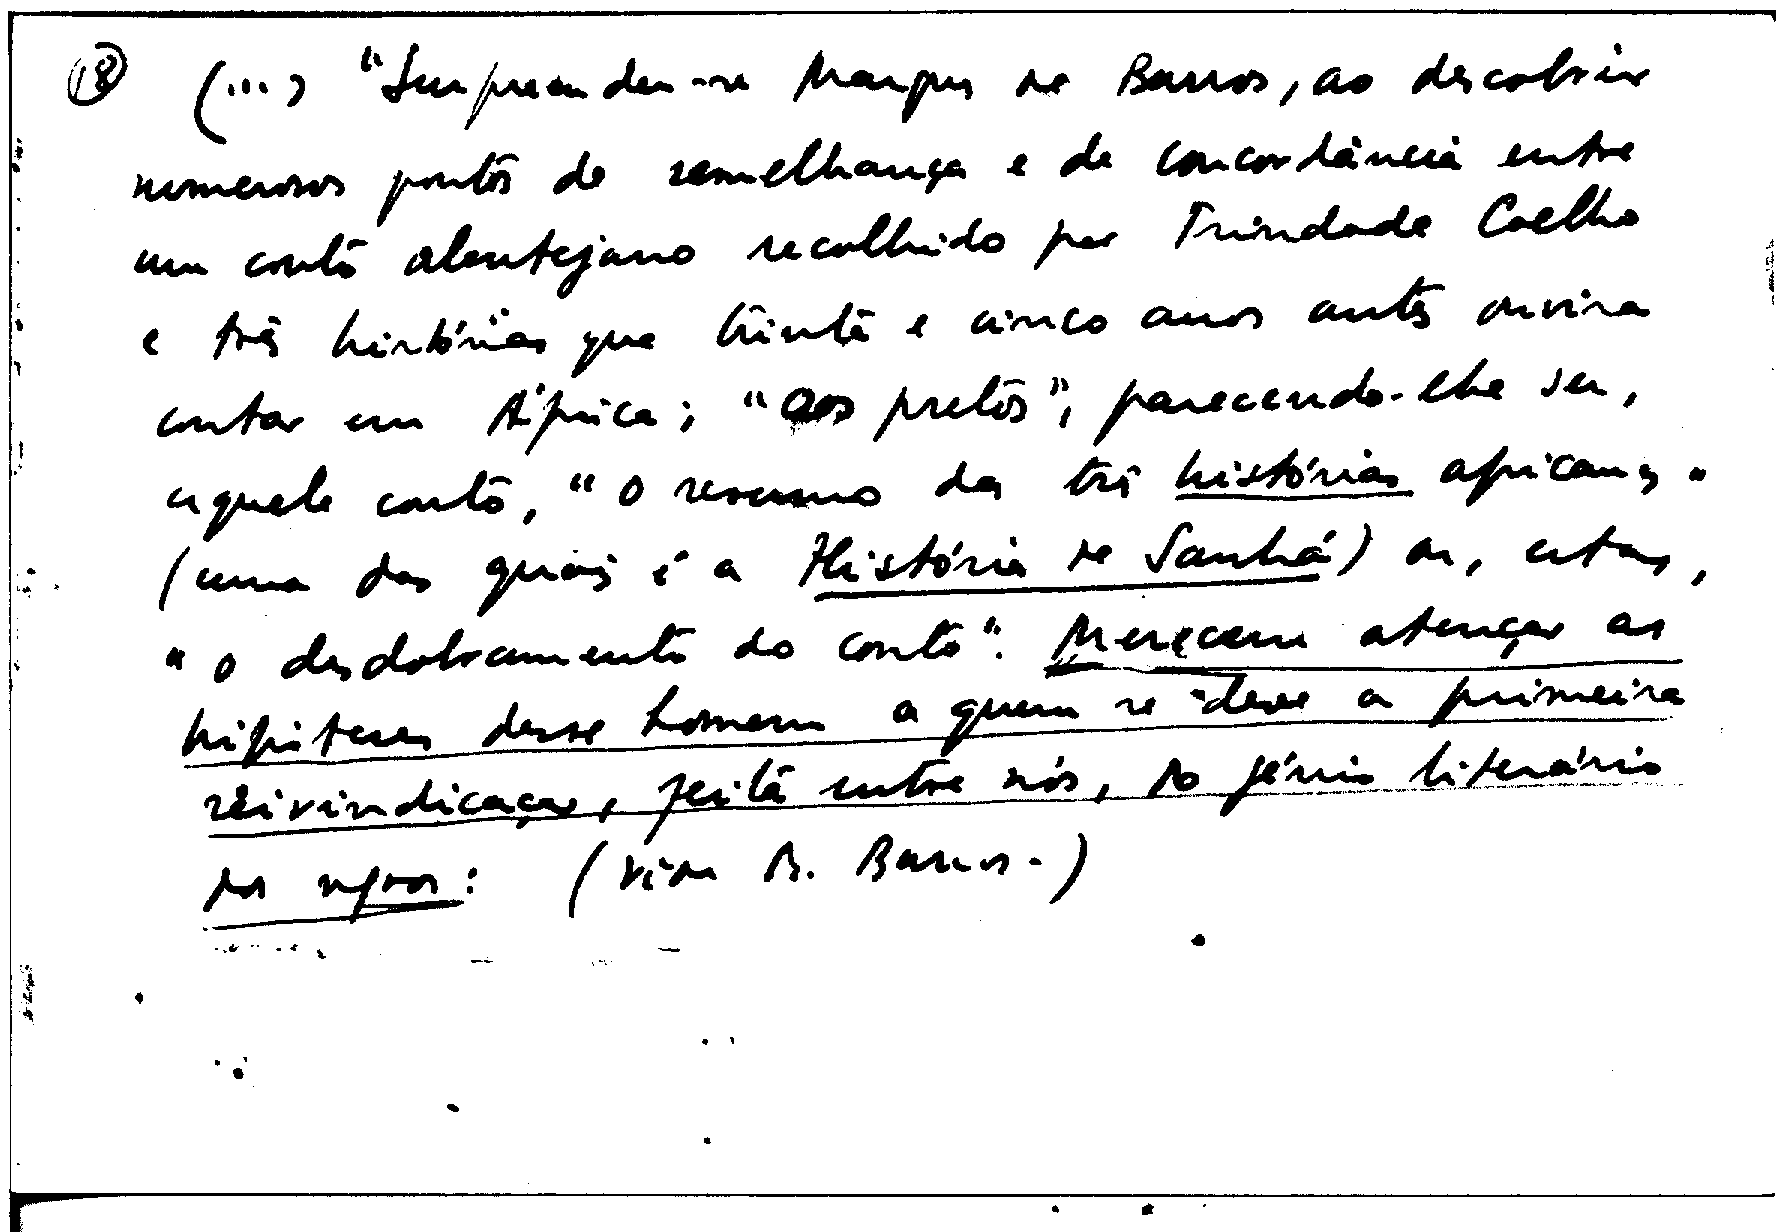 18 (...) "Surpreendeu-se Marques de Barros, ao descobrir
numerosos pontos de semelhança e de concordância entre
um conto alentejano recolhido por Trindade Coelho
e três histórias que trinta e cinco anos antes ouvira
contar em África; "aos pretos", parecendo-lhe ser,
aquele conto, "o resumo das três histórias africanas"
(uma das quais é a História de Sanhá) ou, estas,
"o desdobramento do conto". Merecem atenção as
hipóteses desse homem a quem se deve a primeira
reivindicação, feita entre nós, do génio literário
dos negros: (Vide B. Barros.)